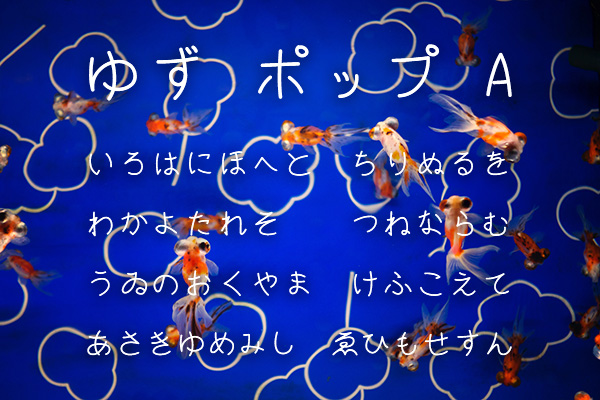 ゆず ポップ A
いろはにほへと ちりぬるを
わかよたれそ つねならむ
うゐのおくやま けふこえて
あさきゆめみし ゑひもせすん